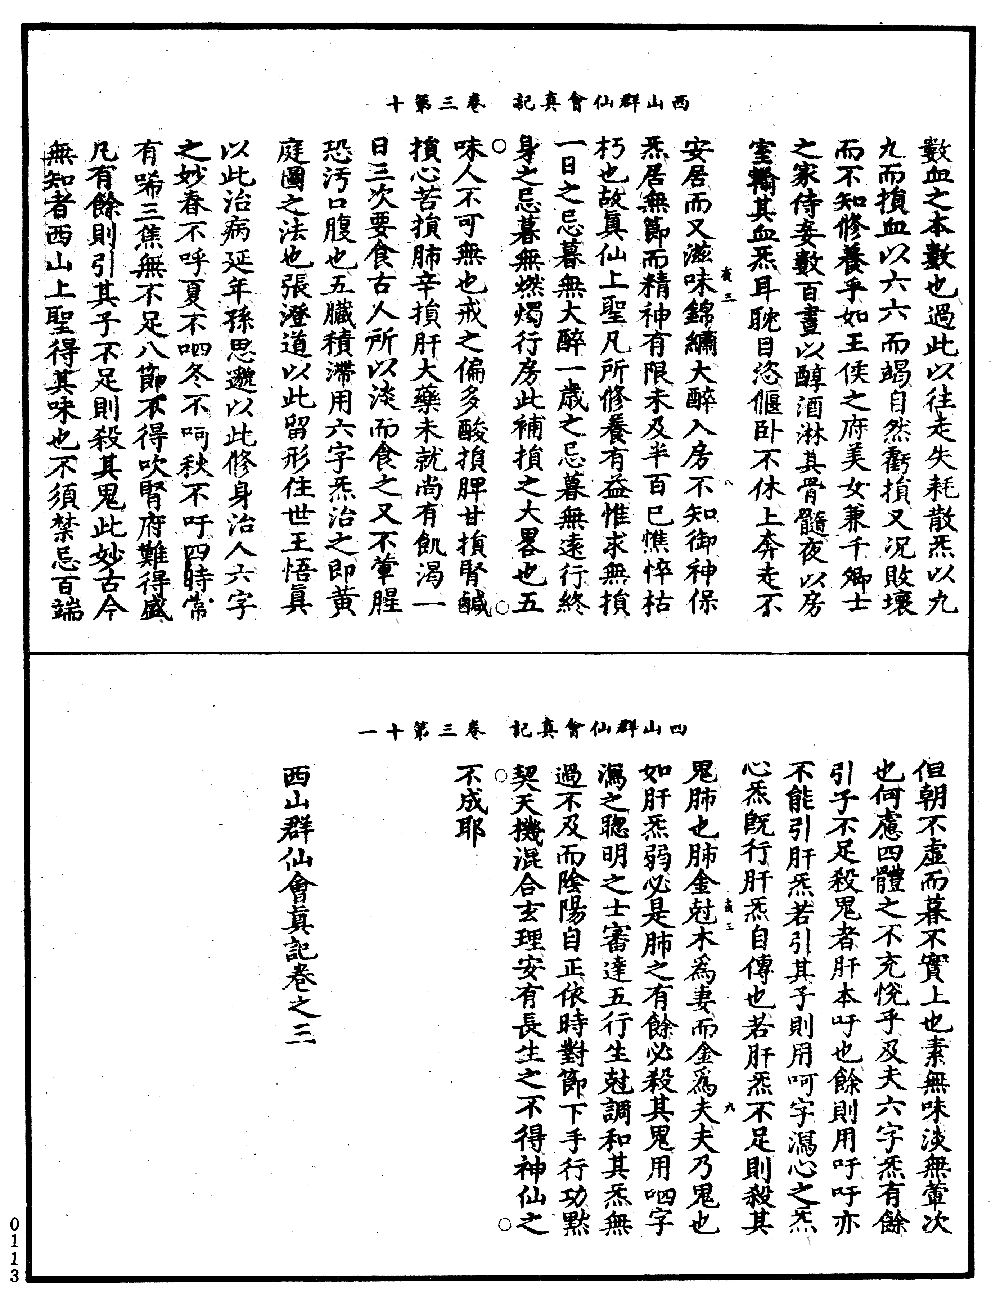 西山群仙會真記　卷三第十
數血之本數也過此以往走失耗散炁以九
九而損血以六六而竭自然虧損又況敗壞
而不知修養乎如王侯之府美女兼千卿士
之家侍妾數百晝以醇酒淋其骨髓夜以房
室輸其血炁耳耽目恣偃卧不休上奔走不
安居而又滋味錦繡大醉入房不知御神保
炁居無節而精神有限未及半百已憔悴枯
朽也故真仙上聖凡所修養有益惟求無損
一日之忌暮無大醉一歲之忌暮無遠行終
身之忌暮無燃燭行房此補損之大畧也五
味人不可無也戒之偏多酸損脾甘損腎鹹
損心苦損肺辛損肝大藥未就尚有飢渴一
日三次要食古人所以淡而食之又不葷腥
恐汚口腹也五臟積滯用六字炁治之即黃
庭圖之法也張澄道以此留形住世王悟真
以此治病延年孫思邈以此修身治人六字
之妙春不呼夏不呬冬不呵秋不吁四時常
有唏三焦無不足八節不得吹腎府難得盛
凡有餘則引其子不足則殺其鬼此妙古今
無知者西山上聖得其味也不須禁忌百端
西山群仙會真記　卷三第十一
但朝不虛而暮不實上也素無味淡無葷次
也何慮四體之不充悅乎及夫六字炁有餘
引子不足殺鬼者肝本吁也餘則用吁吁亦
不能引肝炁若引其子則用呵字瀉心之炁
心炁旣行肝炁自傳也若肝炁不足則殺其
鬼肺也肺金尅木爲妻而金爲夫夫乃鬼也
如肝炁弱必是肺之有餘必殺其鬼用呬字
瀉之聰明之士審達五行生尅調和其炁無
過不及而陰陽自正依時對節下手行功默
契天機混合玄理安有長生之不得神仙之
不成耶
西山群仙會真記卷之三
0113